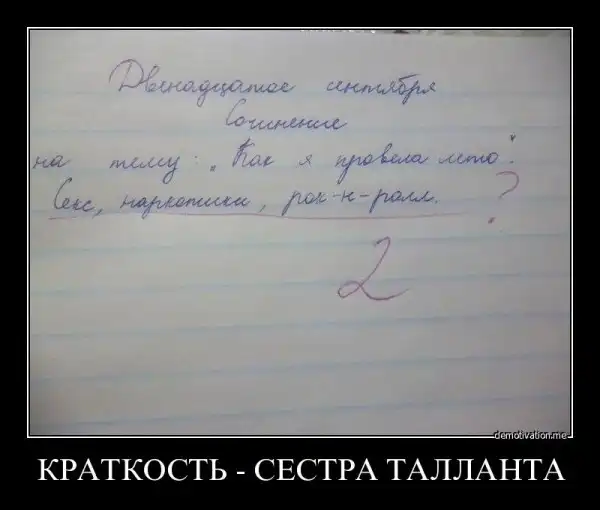 Двенадцатое сентября
Сочинение
на тему: „Как я провела лето".
Секс, наркотики, рок-н-ролл. ?
2
demotivation.me
КРАТКОСТЬ - СЕСТРА ТАЛЛАНТА